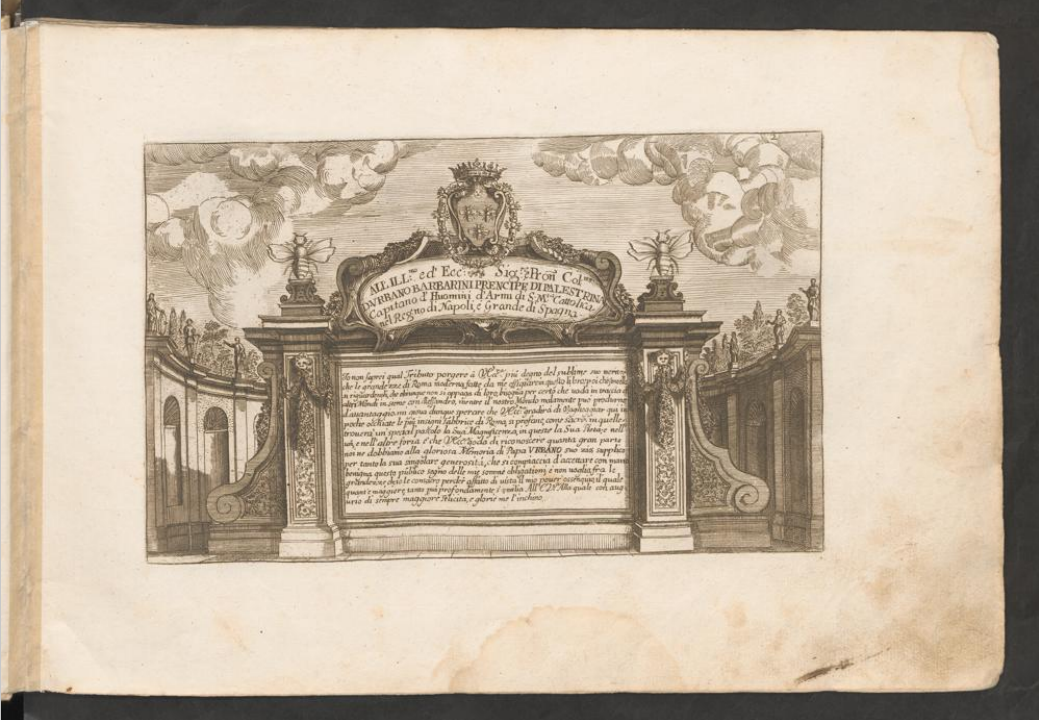 ALL ILL.mo ed Ecc.mo Sig.re Pron Col.mo
D VRBANO BARBARINI PRENCIPE DI PALESTRINA
Capitano d' Huomini d'Armi di S. M.tà Cattolica
nel Regno di Napoli, e Grande di Spagna
Io non saprei qual Tributo porgere á V. Ecc.za piú degno del sublime suo merito
che le grandezze di Roma moderna fatte da me in questo libro
che chiunque non si appaga di loro, bisogna per certo che vada in traccia di
altri Mondi in some con Alessandro, mentre il nostro Mondo malamente può produrne
d'avantaggio. mi giova dunque sperare che V. Ecc.za gradirá di vagheggiar qui in
poche occhiate le piú insigni fabbriche di Roma, si profane, come sacre; in quelle
troverá un special paolo la Sua Magnificenza, in queste la Sua
e nell'altre foria é che V. Ecc.za goda di riconoscere quanta gran parte
noi ne dobbiamo alla gloriosa Memoria di Papa VRBANO suo zio, supplico
per tanto la sua singolare generositá, che si compiaccia d'accettare con mano
benigna questo publico segno delle mie somme obligationi, e non voglia fra le
grandezze, che io le consacro perder affatto di vista il mio pover ossequio, il quale
quant'é maggiore, tanto piú profondamente s'umilia All' E. V.a Alla quale con aug-
urio di sempre maggiore felicitá, e glorie me l'inchino